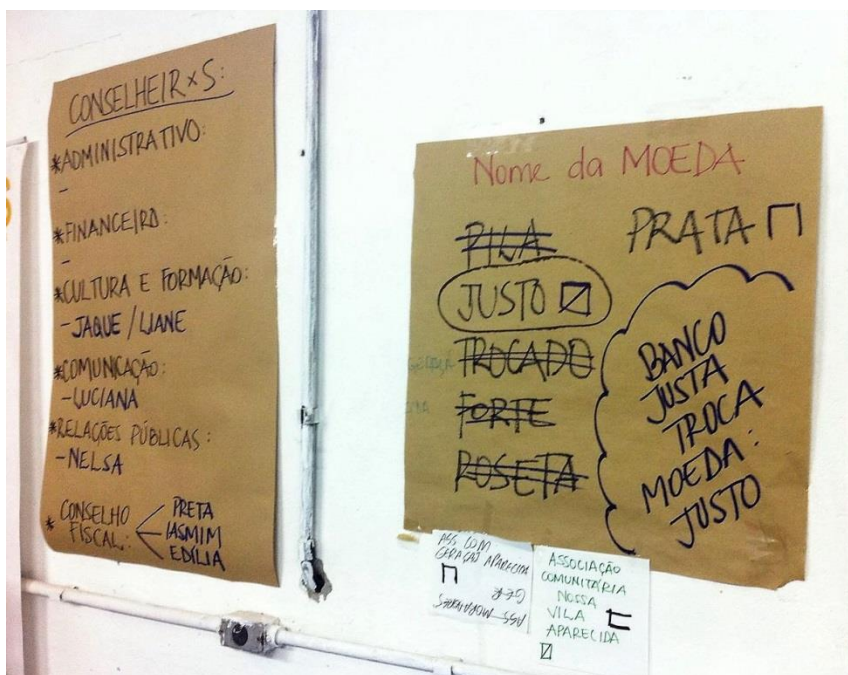 CONSELHEIRXS:
*ADMINISTRATIVO:
-
*FINANCEIRO:
-
*CULTURA E FORMAÇÃO:
-JAQUE/LIANE
*COMUNICAÇÃO:
-LUCIANA
*RELAÇÕES PÚBLICAS:
-NELSA
* CONSELHO FISCAL:
PRETA
IASMIM
EDILIA
Nome da MOEDA
PILA
PRATA
JUSTO
TROCADO
FORTE
ROSETA
BANCO
JUSTA
TROCA
MOEDA:
JUSTO
ASS COM
GERAÇÃO APARECIDA
ASS MORADORES
ASSOCIAÇÃO
COMUNITÁRIA
NOSSA
VILA
APARECIDA